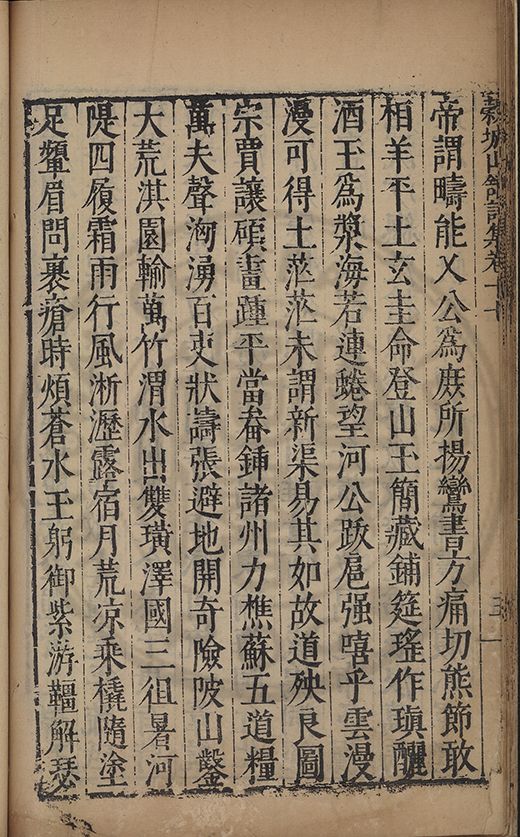 穀城山館詩集卷十
三
帝謂疇能乂公爲庻所揚鸞書方痛切熊節敢
相羊平土玄圭命登山玉簡藏鋪筵瑤作瑱釃
酒玉爲漿海若連蜷望河公跋扈强嘻乎雲漫
漫可得土茫茫未謂新渠易其如故道殃良圖
宗賈讓碩畫踵平當畚鍤諸州力樵蘇五道糧
萬夫聲洶湧百吏狀譸張避地開奇險陂山鑿
大荒淇園輸萬竹渭水出雙璜澤國三徂暑河
隄四履霜雨行風淅瀝露宿月荒凉乘橇隨塗
足顰眉問裹瘡時煩蒼水王躬御紫游韁解瑟